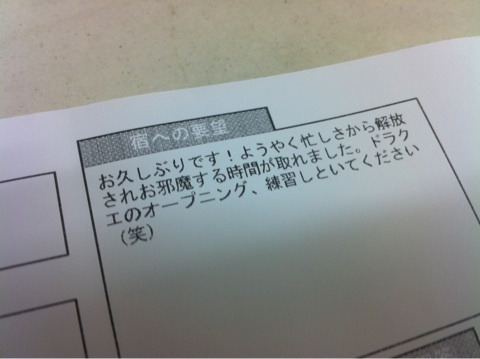 宿への要望
お久しぶりです！ようやく忙しさから解放
されお邪魔する時間が取れました。ドラク
エのオープニング、練習しといてください
（笑）